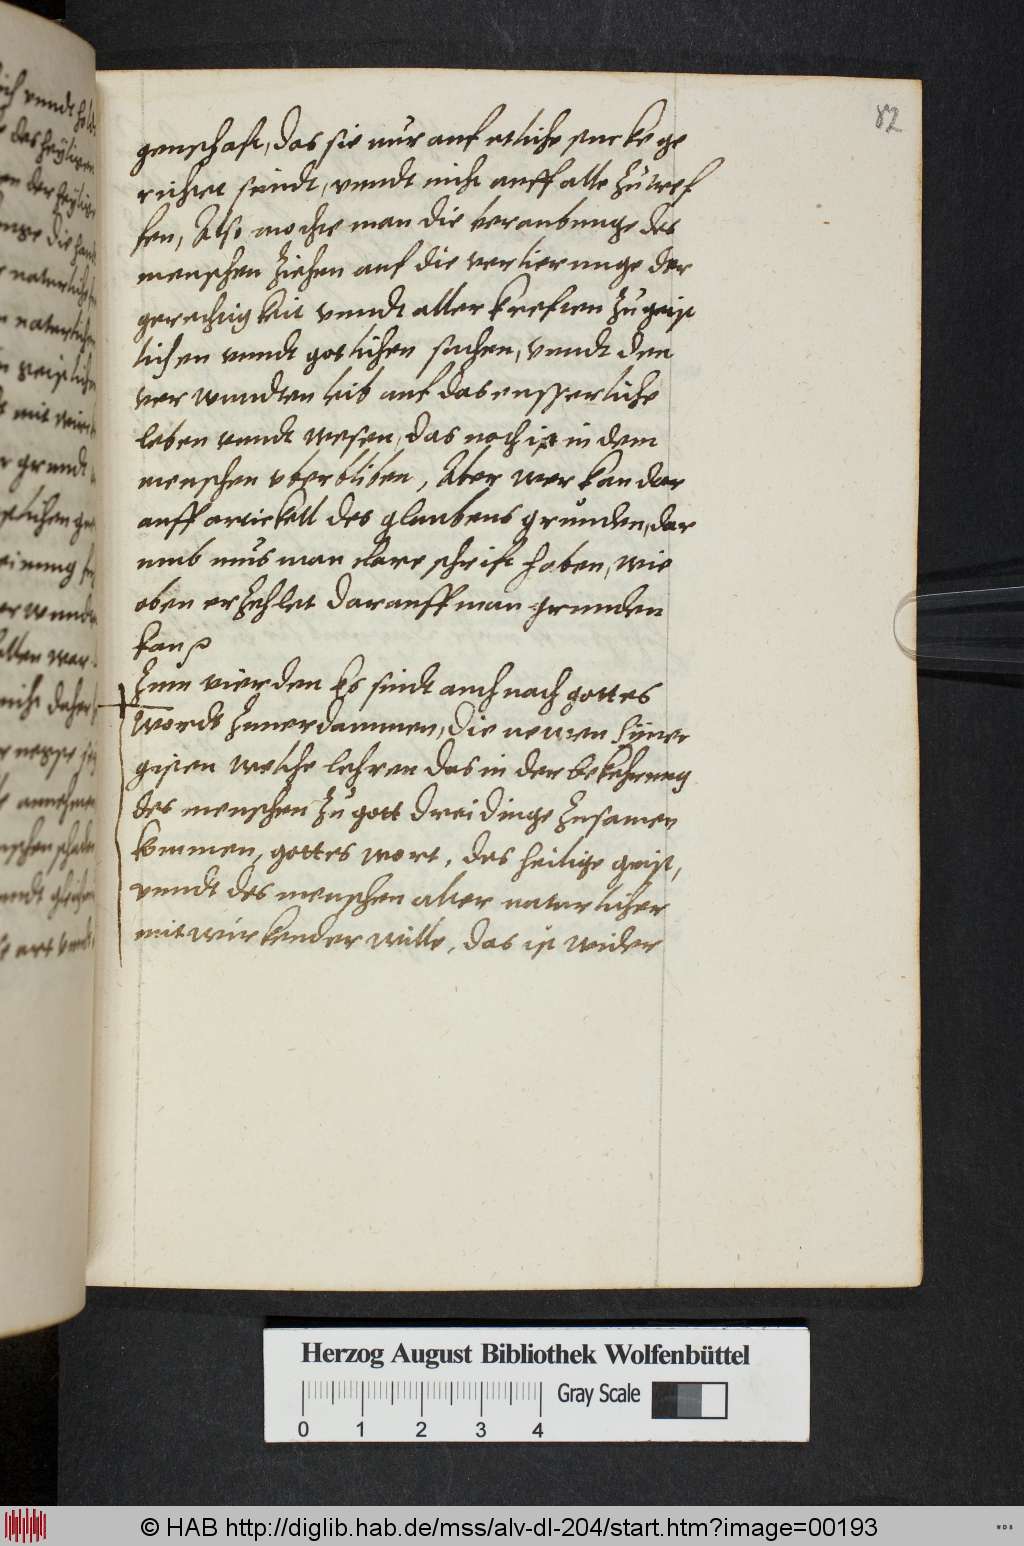 82
genschafft, das sie nur auf etliche stucke ge
richtet seindt, vnndt nicht auff alle zutref
fen, Also mochte man die beraubunge des
menschen ziehen auf die verlierunge der
gerechtigkeit vnndt aller kreften zu geist
lichen vnndt gotlichen sachen, vnndt den
verwundten leib auf das eusserliche
leben vnndt wesen, das noch ist in dem
menschen vberbliben, Aber wer kan dar
auff artickell des glaubens grunden, dar
umb mus man clare schrift haben, wie
oben erzehlet darauff man grunden
kan
Zum vierden Es sindt auch nach gottes
wordt zuuerdammen, die neuwen Syner
gisten welche lehren das in der bekehrung
des menschen zu gott drei dinge zusamen
kommen, gottes wort, des heilige geist,
vnndt des menschen alter naturlicher
mitwirkender wille, das ist wider
Herzog August Bibliothek Wolfenbüttel
Gray Scale
0 1 2 3 4
© HAB http://diglib.hab.de/mss/alv-dl-204/start.htm?image=00193